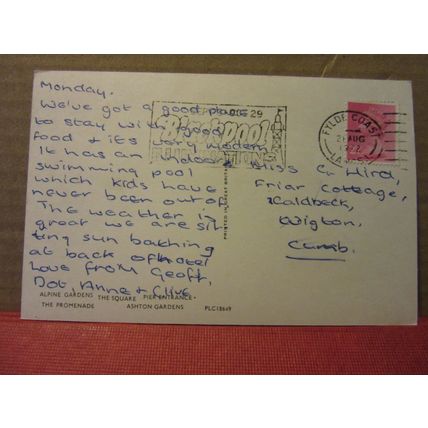 Monday.
We've got a good place
to stay with good
food & it's very modern
It has an indoor
swimming pool
which kids have
never been out of.
The weather is
great we are sit
ting sun bathing
at back of hotel
Love from Geoff,
Dot, Anne & Clive
29
Blackpool
ILLUMINATIONS
FYLDE COAST
AUG
Miss C. Hird,
Friar Cottage,
Caldbeck,
Wigton,
Cumb.
PRINTED IN GREAT BRITAIN
ALPINE GARDENS THE SQUARE PIER ENTRANCE
THE PROMENADE ASHTON GARDENS PLC18649